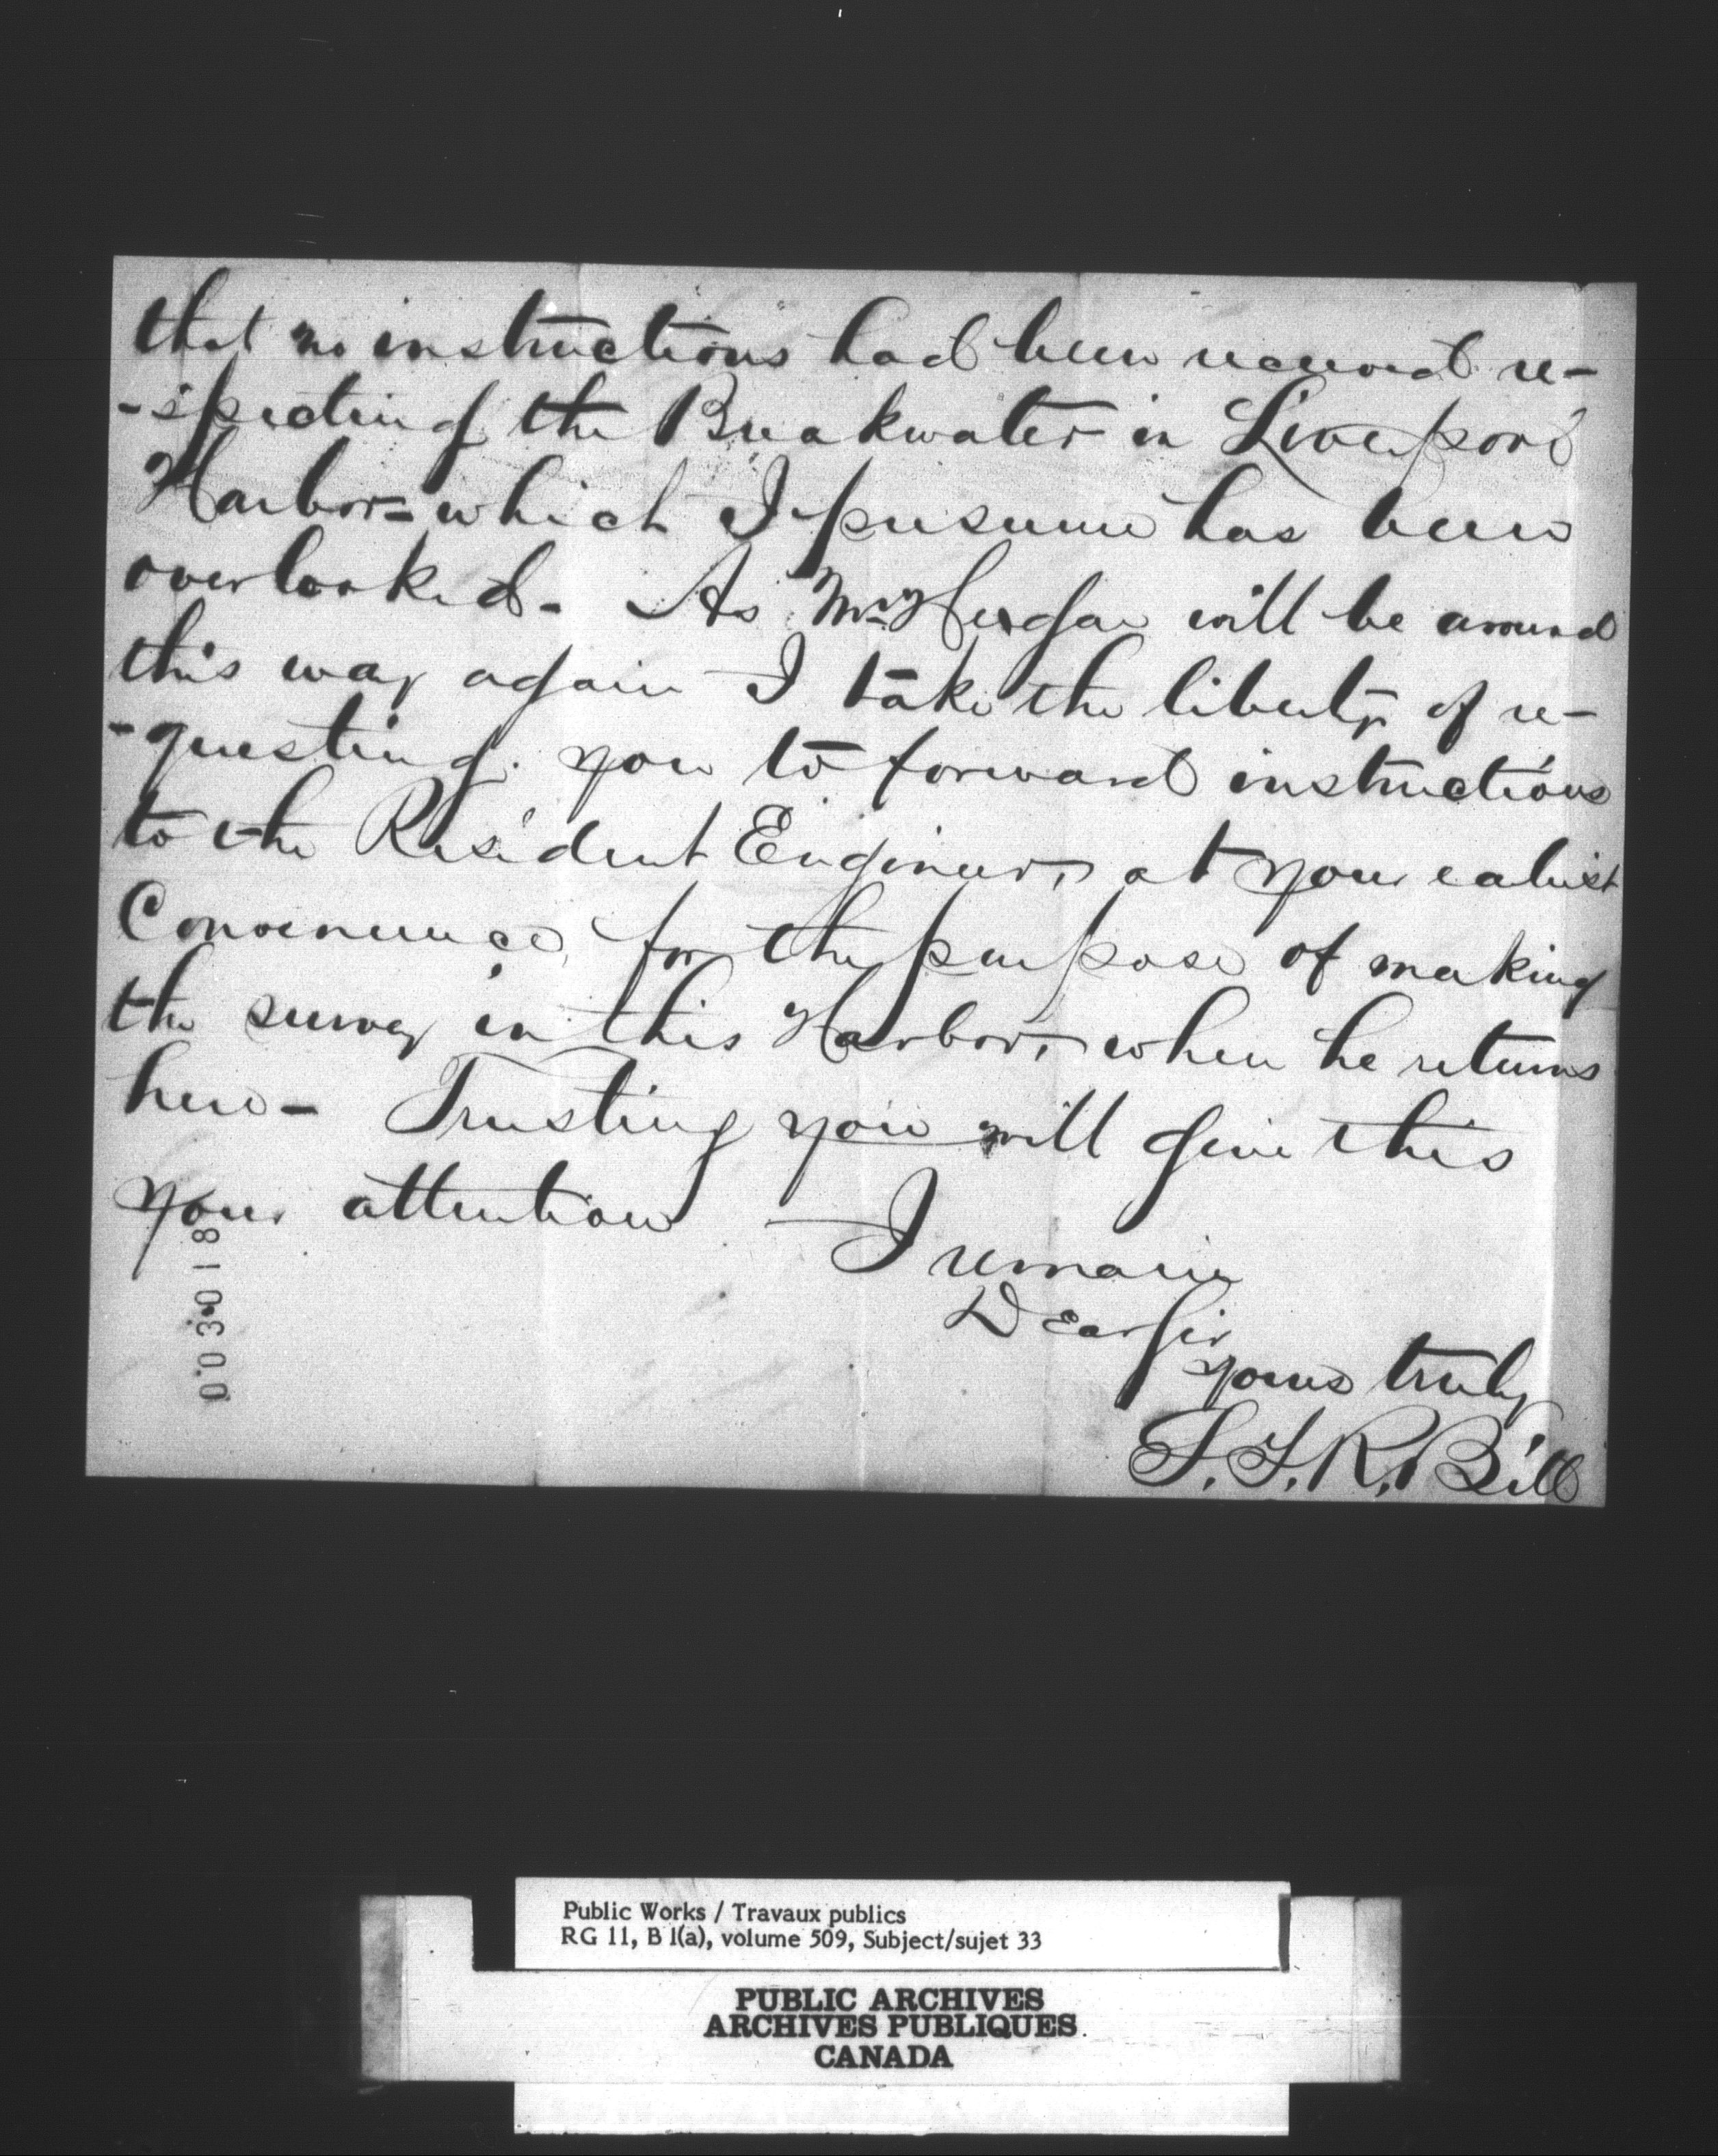 that no instructions had been received re-
-specting the Breakwater in Liverpool
Harbor - which I presume has been
overlooked - As Mr will be around
this way again I take the liberty of re-
-questing you to forward instructions
to the Resident Engineer, at your ealiest
Convenience, for the purpose of making
the survey in this Harbor, when he returns
here - Trusting you will give this
your attention
I remain
Dear Sir
yours truly
S. F. R. Bill
003018
Public Works / Travaux publics
RG 11, B 1(a), volume 509, Subject/sujet 33
PUBLIC ARCHIVES
ARCHIVES PUBLIQUES
CANADA